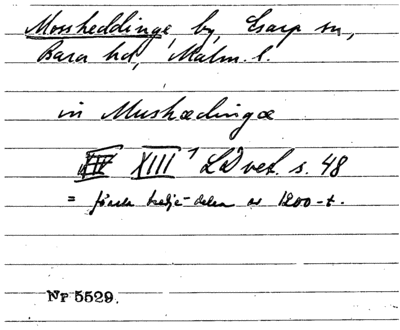 Mossheddinge, by, Esarp sn,
Bara hd, Malm. l.
in Mushædingæ
XIII 1 LDvet. s. 48
= första tredje-delen av 1200-t.
Nr 5529.